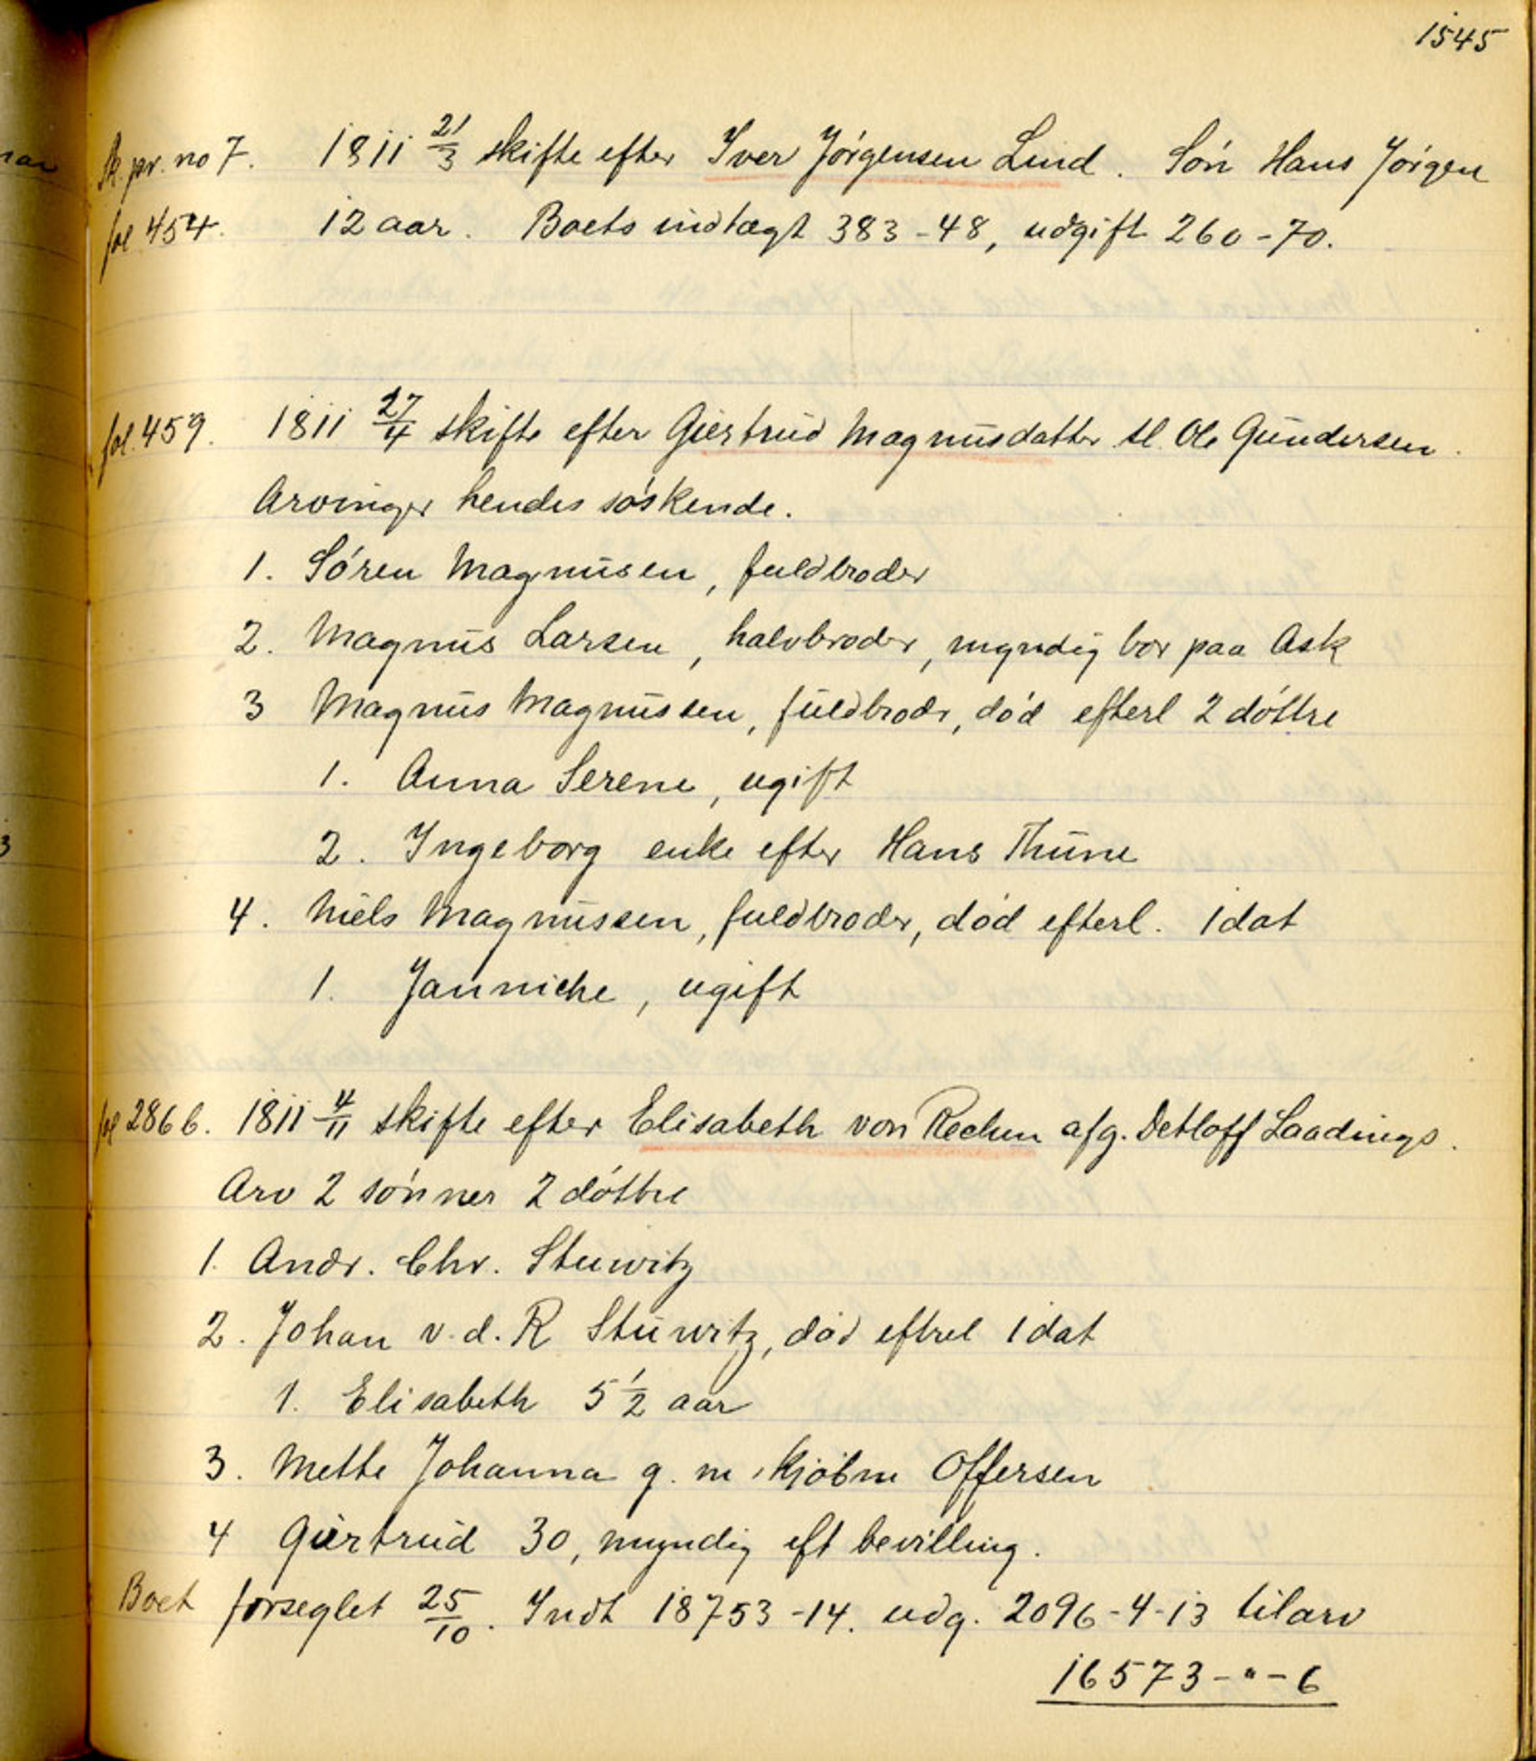 1545
Sk. pr. no 7. 1811 21/3 skifte efter Iver Jörgensen Lund. Sön Hans Jörgen
fol 454. 12 aar. Boets indtægt 383-48, udgift 260-70.
fol. 459. 1811 27/4 skifte efter Giertrud Magnusdatter sl. Ole Gundersen.
Arvinger hendes söskende.
1. Sören Magnusen, fuldbroder
2. Magnus Larsen, halvbroder, myndig bor paa Ask
3 Magnus Magnussen, fuldbrodr, död efterl 2 döttre
1. Anna Serene, ugift
2. Ingeborg enke efter Hans Thune
4. Niels Magnussen, fuldbroder, död efterl. 1 dat
1. Jannicke, ugift
fol 286 b. 1811 4/11 skifte efter Elisabeth von Rechen afg. Detloff Laadings.
Arv 2 sönner 2 döttre
1. Andr. Chr. Stuwitz
2. Johan v. d. R Stuwitz, död eftrel 1 dat
1. Elisabeth 5 1/2 aar
3. Mette Johanna g. m. kjöbm Offersen
4 Giertrud 30, myndig eft bevilling.
Boet forseglet 25/10. Indt 18753-14. udg. 2096-4-13 tilarv
16573-"-6